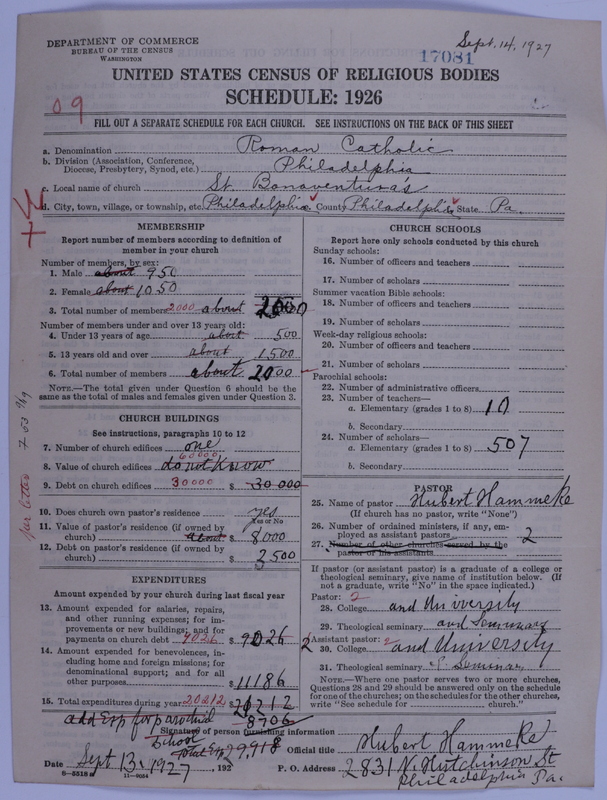 Sept. 14, 1927
DEPARTMENT OF COMMERCE
BUREAU OF THE CENSUS
WASHINGTON
17081
UNITED STATES CENSUS OF RELIGIOUS BODIES
SCHEDULE: 1926
09
FILL OUT A SEPARATE SCHEDULE FOR EACH CHURCH. SEE INSTRUCTIONS ON THE BACK OF THIS SHEET
a. Denomination Roman Catholic
b. Division (Association, Conference, Diocese, Presbytery, Synod, etc.) Philadelphia
c. Local name of church St. Bonaventuras
d. City, town, village, or township, etc. Philadelphia County Philadelphia State Pa.
MEMBERSHIP
Report number of members according to definition of
member in your church
Number of members, by sex:
1. Male about 950
2. Female about 1050
3. Total number of members 2000 about 2000
Number of members under and over 13 years old:
4. Under 13 years of age about 500
5. 13 years old and over about 1500
6. Total number of members about 2000
NOTE.—The total given under Question 6 should be the
same as the total of males and females given under Question 3.
CHURCH BUILDINGS
See instructions, paragraphs 10 to 12
7. Number of church edifices one
60000
8. Value of church edifices do not know
9. Debt on church edifices 30000 $ 30 000
10. Does church own pastor's residence yes
Yes or No
11. Value of pastor's residence (if owned by
church) about $ 8000
12. Debt on pastor's residence (if owned by
church) $ 3500
per letter
EXPENDITURES
Amount expended by your church during last fiscal year
13. Amount expended for salaries, repairs,
and other running expenses; for im-
provements or new buildings; and for
payments on church debt 9026 $ 9026
14. Amount expended for benevolences, in-
cluding home and foreign missions; for
denominational support; and for all
other purposes $ 11186
15. Total expenditures during year 20212 $ 20212
add Exp for parochial 8706
School
Total Exp 29,918
CHURCH SCHOOLS
Report here only schools conducted by this church
Sunday schools:
16. Number of officers and teachers
17. Number of scholars
Summer vacation Bible schools:
18. Number of officers and teachers
19. Number of scholars
Week-day religious schools:
20. Number of officers and teachers
21. Number of scholars
Parochial schools:
22. Number of administrative officers
23. Number of teachers—
a. Elementary (grades 1 to 8) 10
b. Secondary
24. Number of scholars—
a. Elementary (grades 1 to 8) 507
b. Secondary
PASTOR
25. Name of pastor Hubert Hammeke
(If church has no pastor, write "None")
26. Number of ordained ministers, if any, em-
ployed as assistant pastors 2
27. Number of other churches served by the
pastor or his assistants
If pastor (or assistant pastor) is a graduate of a college or
theological seminary, give name of institution below. (If
not a graduate, write "No" in the space indicated.)
Pastor: 2
28. College and University
29. Theological seminary and Seminary
Assistant pastor: 2
30. College and University
31. Theological seminary Seminary
NOTE.—Where one pastor serves two or more churches,
Questions 28 and 29 should be answered only on the schedule
for one of the churches; on the schedules for the other churches,
write "See schedule for church."
Signature of person furnishing information Hubert Hammeke
Official title
Date Sept 13, 1927, 192
P. O. Address 2831 N. Hutchinson St
Philadelphia Pa.
8—5518a 11—9054